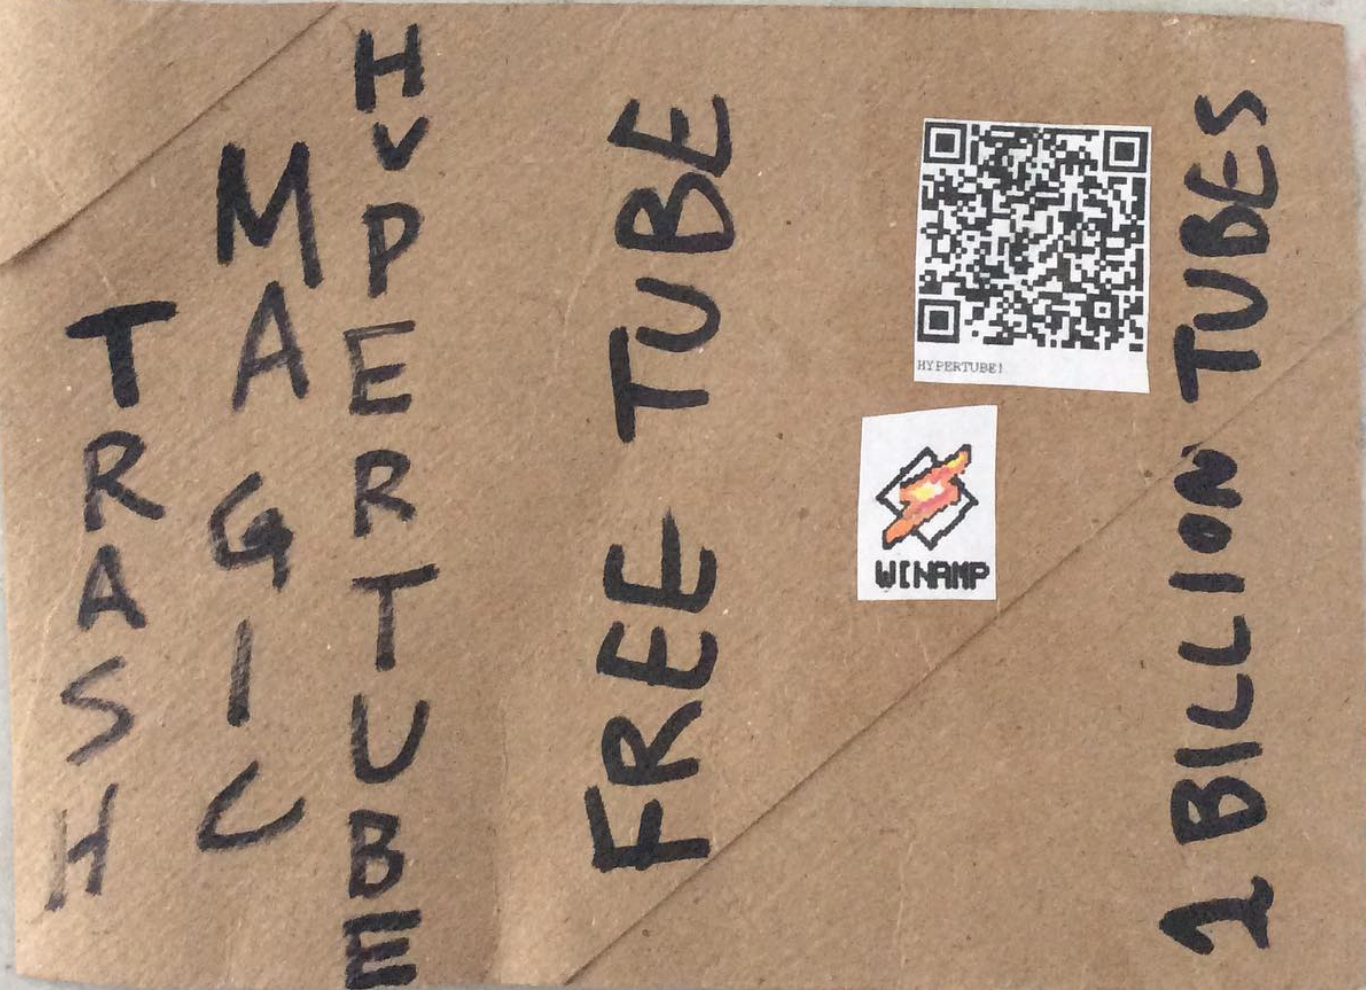 TRASH
MAGIC
HYPERTUBE
FREE TUBE
HYPERTUBE!
WINAMP
1 BILLION TUBES